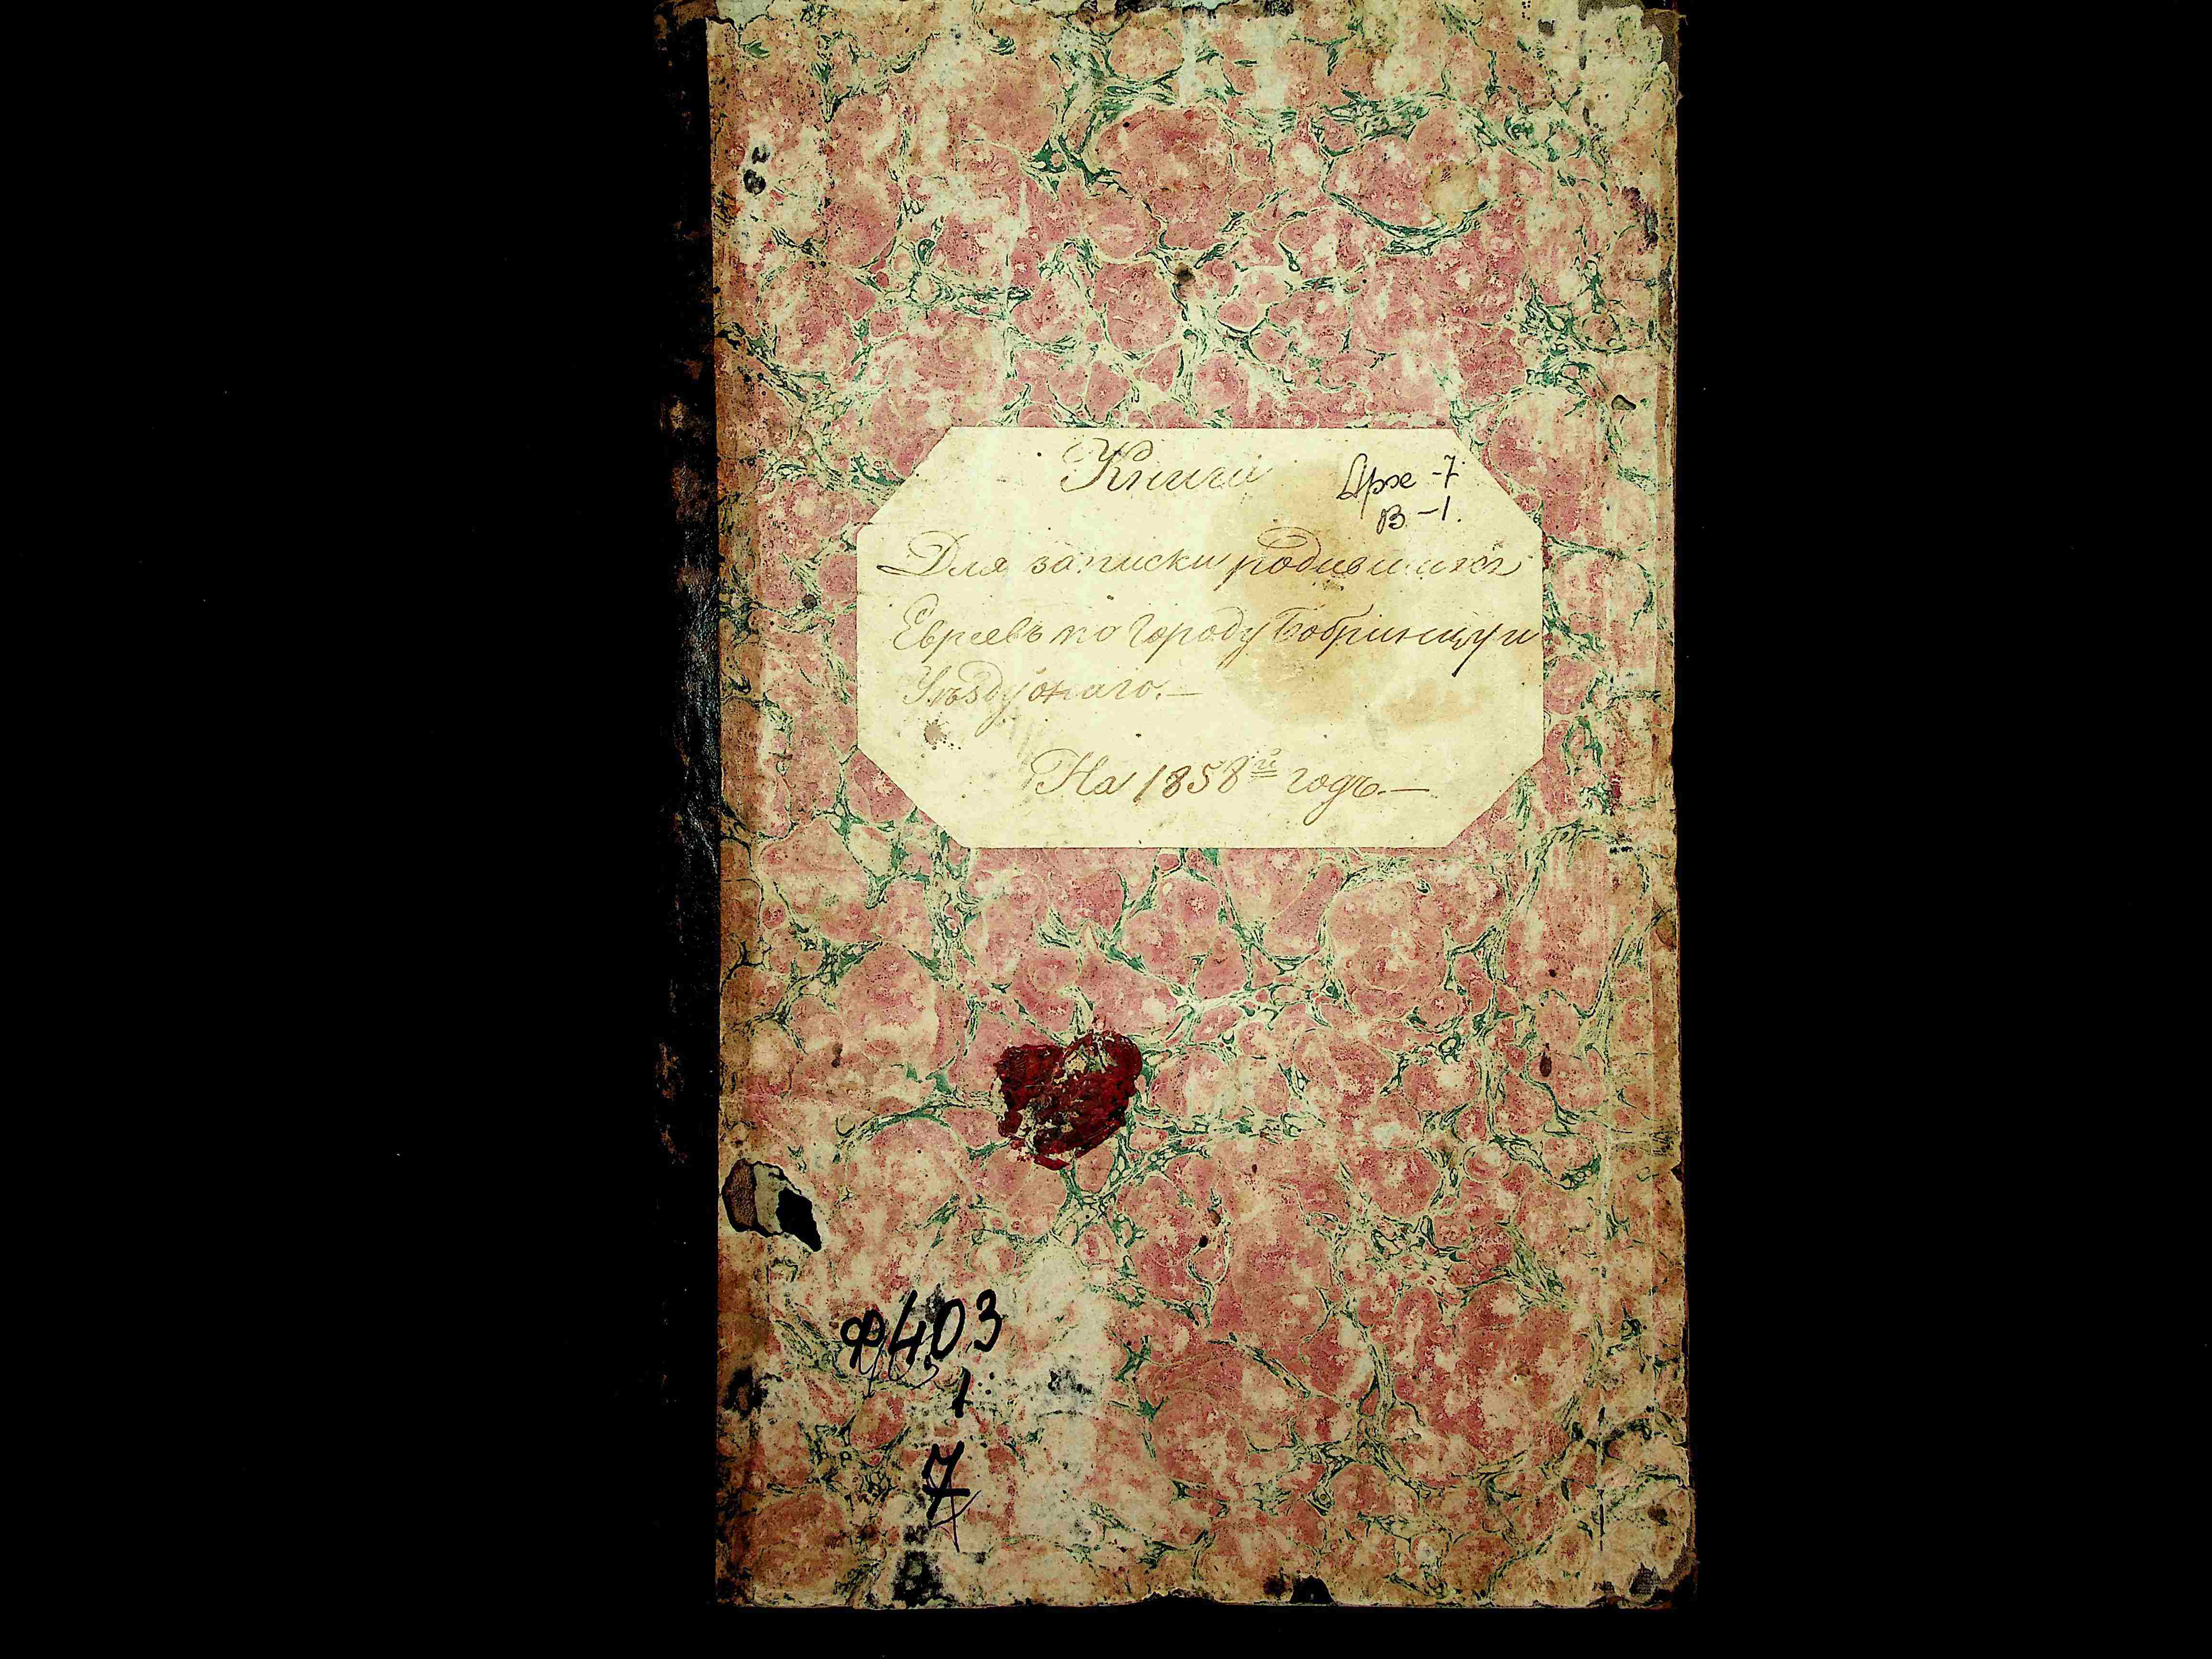 Книга
Арх-7
В-1.
Для записки родившихся
Евреевъ по городу Бобринцу и
Уѣзду онаго.—
На 1858й годъ.—
Ф403
1
7